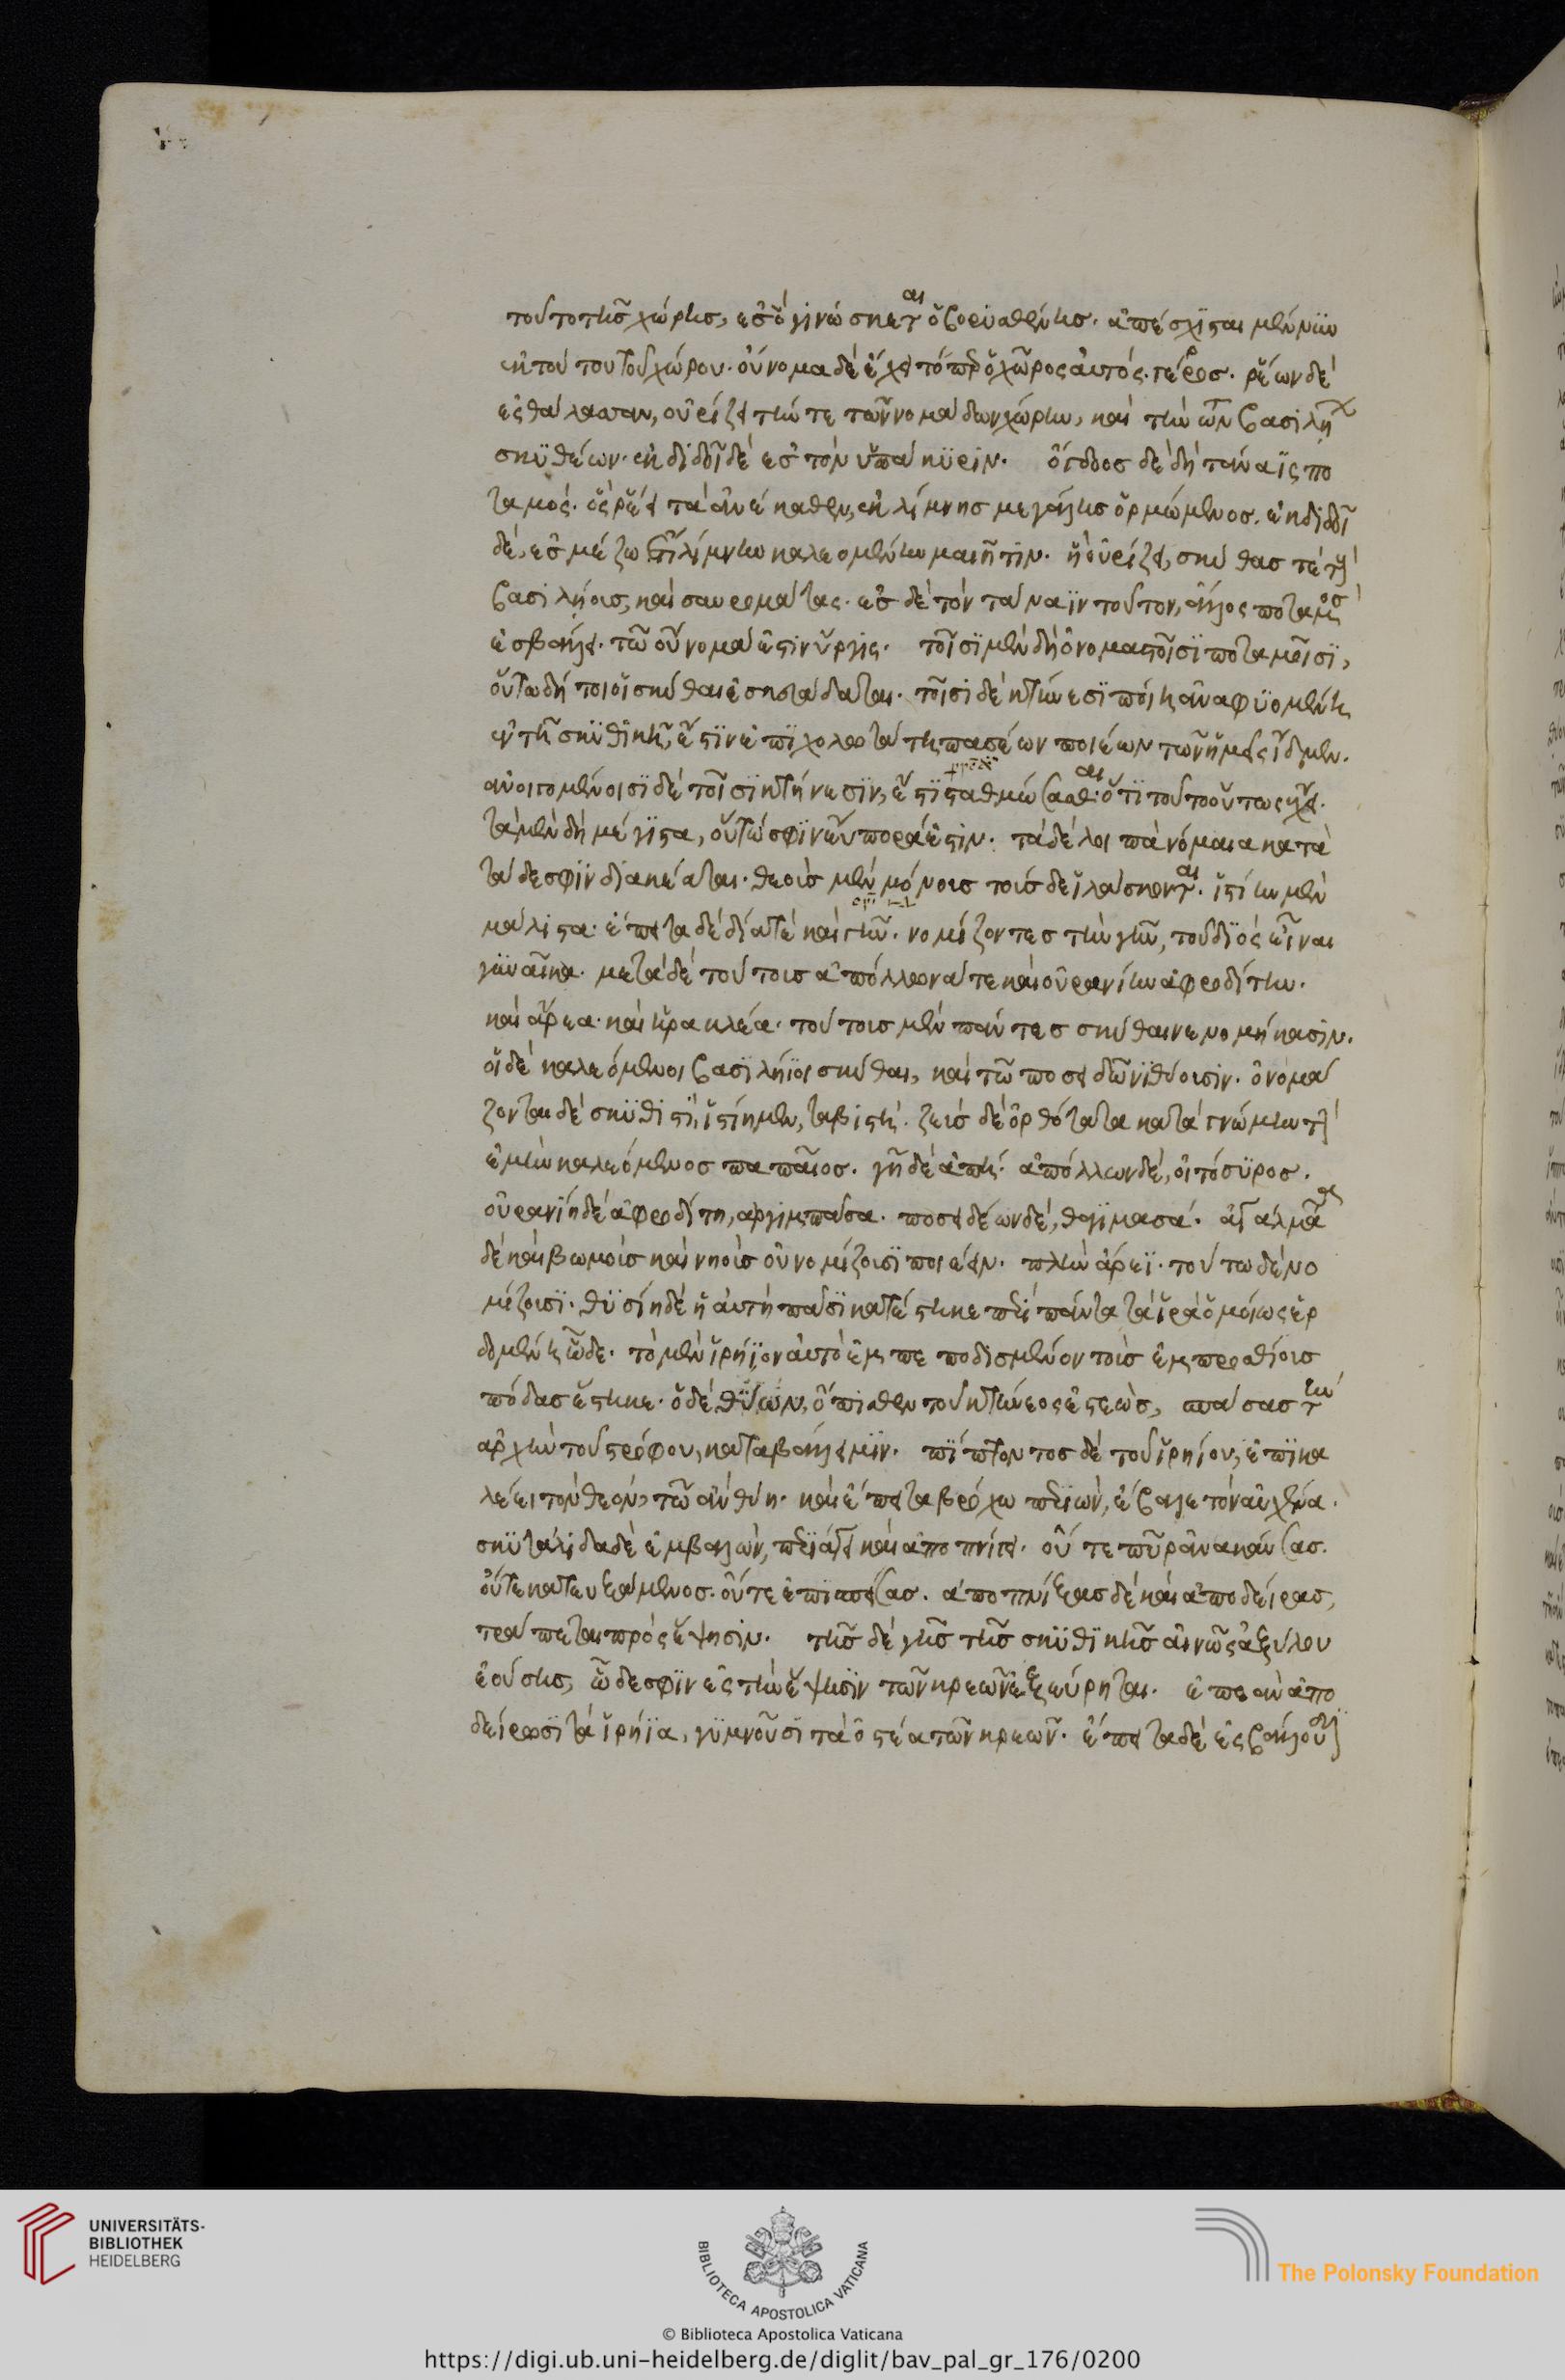 τοῦτο τῆς χώρης, ἐς ὃ γινώσκεται ὁ βορυσθένης. ἀπέσχισται μέν νυν
ἐκ τούτου τοῦ χώρου. οὔνομα δὲ ἔχει τό περ ὁ χῶρος αὐτός. γέρρος. ῥέων δὲ
ἐς θάλασσαν, οὐρίζει τήν τε τῶν νομάδων χώρην, καὶ τὴν τῶν βασιληίων
σκυθέων. ἐκδιδοῖ δὲ ἐς τὸν ὑπάκυριν. ὄγδοος δὲ δὴ τάναϊς πο
ταμός. ὃς ῥέει τὰ ἀνέκαθεν, ἐκ λίμνης μεγάλης ὁρμώμενος. ἐκδιδοῖ
δὲ, ἐς μέζω ἔτι λίμνην καλεομένην μαιῆτιν. ἣ οὐρίζει, σκύθας τε τοὺς
βασιληίους, καὶ σαυρομάτας. ἐς δὲ τὸν τάναϊν τοῦτον, ἄλλος ποταμὸς
ἐσβάλλει. τῶ οὔνομά ἐστιν ὕργις. τοῖσι μὲν δὴ ὀνομαστοῖσι ποταμοῖσι,
οὕτω δή τοι οἱ σκύθαι ἐσκευάδαται. τοῖσι δὲ κτήνεσι ποίη ἀναφυομένη
ἐν τῆ σκυθικῆ, ἔστιν ἐπιχολωτάτη πασέων ποιέων τῶν ἡμεῖς ἴδμεν.
ἀνοιγομένοισι δὲ τοῖσι κτήνεσιν, ἔστι σταθμώσασθαι ὅτι τοῦτο οὕτως ἔχει.
τὰ μὲν δὴ μέγιστα, οὕτω σφιν εὔπορά ἐστιν. τὰ δὲ λοιπὰ νόμαια κατὰ
τάδε σφιν διακέαται. θεοὺς μὲν μόνους τούσδε ἱλάσκονται. ἱστίην μὲν
μάλιστα. ἔπειτα δὲ δία τε καὶ γῆν. νομίζοντες τὴν γῆν, τοῦ διὸς εἶναι
γυναῖκα. μετὰ δὲ τούτους ἀπόλλωνά τε καὶ οὐρανίην ἀφροδίτην.
καὶ ἄρεα. καὶ ἡρακλέα. τούτους μὲν πάντες σκύθαι νενομήκασιν.
οἱ δὲ καλεόμενοι βασιλήϊοι σκύθαι, καὶ τῶ ποσειδῶνι θύουσιν. ὀνομά
ζονται δὲ σκυθιστὶ, ἱστίη μὲν, ταβιτί. ζεὺς δὲ ὀρθότατα κατὰ γνώμην τὴν
ἐμὴν καλεόμενος παπαῖος. γῆ δὲ ἀπί. ἀπόλλων δὲ, οἰτόσυρος.
οὐρανίη δὲ ἀφροδίτη, ἀργίμπασα. ποσειδέων δὲ, θαγιμασά. ἀγάλματα
δὲ καὶ βωμοὺς καὶ νηοὺς οὐ νομίζουσι ποιέειν. πλὴν ἄρεϊ. τούτω δὲ νο
μίζουσι. θυσίη δὲ ἡ αὐτὴ πᾶσι κατέστηκε περὶ πάντα τὰ ἱρὰ ὁμοίως ἐρ
δομένη ὧδε. τὸ μὲν ἱρήϊον αὐτὸ ἐμπεποδισμένον τοὺς ἐμπροσθίους
πόδας ἕστηκε. ὁ δὲ θύων, ὄπισθεν τοῦ κτήνεος ἑστεὼς, σπάσας τὴν
ἀρχὴν τοῦ στρόφου, καταβάλλει μιν. πίπτοντος δὲ τοῦ ἱρηίου, ἐπικα
λέει τὸν θεὸν, τῶ ἂν θύη. καὶ ἔπειτα βρόχω περὶ ὦν, ἔβαλε τὸν αὐχένα.
σκυταλίδα δὲ ἐμβαλὼν, περιάγει καὶ ἀποπνίγει. οὔτε πῦρ ἀνακαύσας.
οὔτε κατευξάμενος. οὔτε ἐπισπείσας. ἀποπνίξας δὲ καὶ ἀποδείρας,
τράπεται πρὸς ἕψησιν. τῆς δὲ γῆς τῆς σκυθικῆς αἰνῶς ἀξύλου
ἐούσης, ὧδέ σφιν ἐς τὴν ἕψησιν τῶν κρεῶν ἐξεύρηται. ἐπεὰν ἀπο
δείρωσι τὰ ἱρήϊα, γυμνοῦσι τὰ ὀστέα τῶν κρεῶν. ἔπειτα δὲ ἐσβάλλουσιν
UNIVERSITÄTS-
BIBLIOTHEK
HEIDELBERG
BIBLIOTECA APOSTOLICA VATICANA
The Polonsky Foundation
© Biblioteca Apostolica Vaticana
https://digi.ub.uni-heidelberg.de/diglit/bav_pal_gr_176/0200